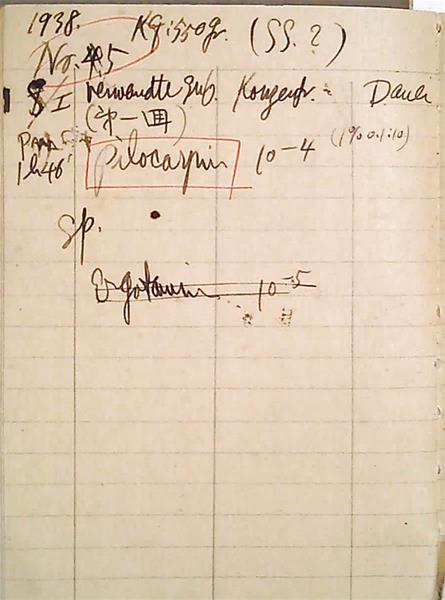 1938. KG: 550gr. (SS. ?)
No. 45
I Verwendte Sub. Konzentr. Dauer
(第一囘)
Pilocarpin 10-4 (1% 0.1:10)
1h46'
Sp.
Ergotamin 10-5